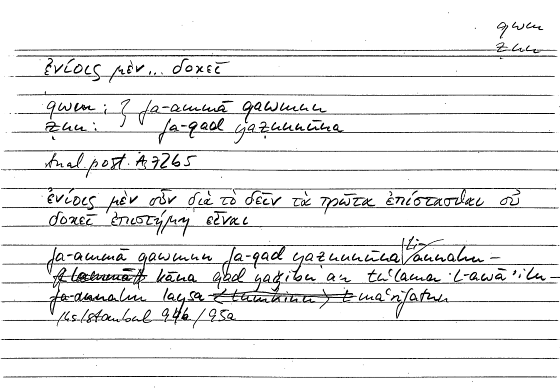 qwm
ẓnn
ἐνίοις μὲν... δοκεῖ
qwm : } fa-ammā qawmun
ẓnn : fa-qad yaẓunnūna
Anal. post. A 72b5
ἐνίοις μὲν οὖν διὰ τὸ δεῖν τὰ πρῶτα ἐπίστασθαι οὐ
δοκεῖ ἐπιστήμη εἶναι
fa-ammā qawmun fa-qad yaẓunnūna li-annahu
kāna qad yaǧibu an tuʿlama l-awāʾilu
fa-annahu laysa maʿrifatun
Hs Istanbul 94b / 95a